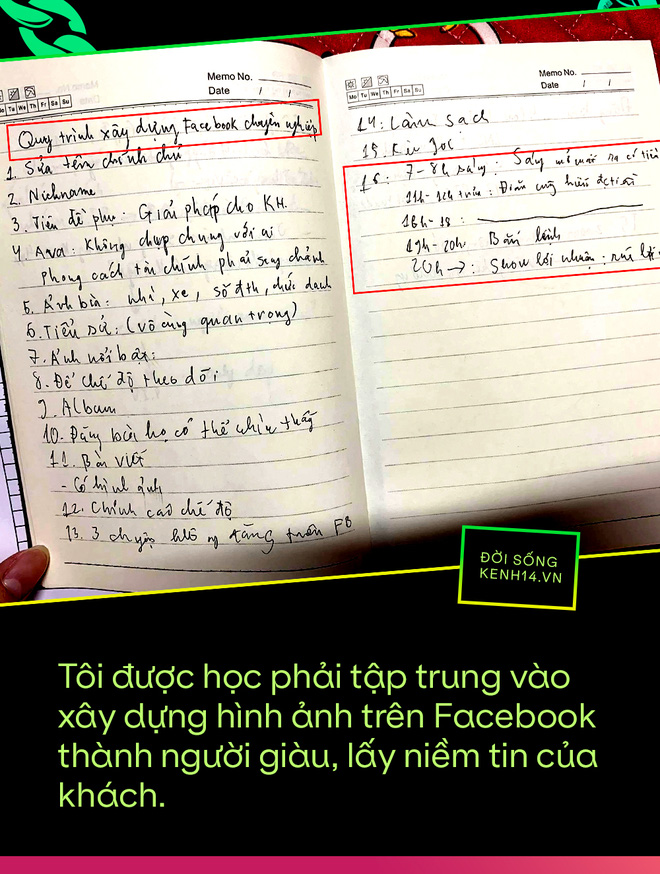 Memo No.
Date / /
Mo Tu We Th Fr Sa Su
Quy trình xây dựng Facebook chuyên nghiệp
1. Sửa tên chính chủ
2. Nickname
3. Tiền đề phụ: Giải pháp cho KH.
4. Ava: Không chụp chung với ai
phong cách tài chính phải sang chảnh
5. Ảnh bìa: nhà, xe, số đth, chức danh
6. Tiểu sử: (vô cùng quan trọng)
7. Ảnh nổi bật:
8. Để chế độ theo dõi
9. Album
10. Đăng bài họ có thể nhìn thấy
11. Bài viết
- Có hình ảnh
12. Chỉnh cao chế độ
13. 3 chuyện đăng trên FB
Memo No.
Date / /
Mo Tu We Th Fr Sa Su
14: Làm sạch
15.
16: 7-8h sáng: Sáng mở mắt ra có tiền
11h-12h trưa:
16h-18:
19h-20h Bắn lệnh
20h → : Show lợi nhuận:
ĐỜI SỐNG
KENH14.VN
Tôi được học phải tập trung vào
xây dựng hình ảnh trên Facebook
thành người giàu, lấy niềm tin của
khách.